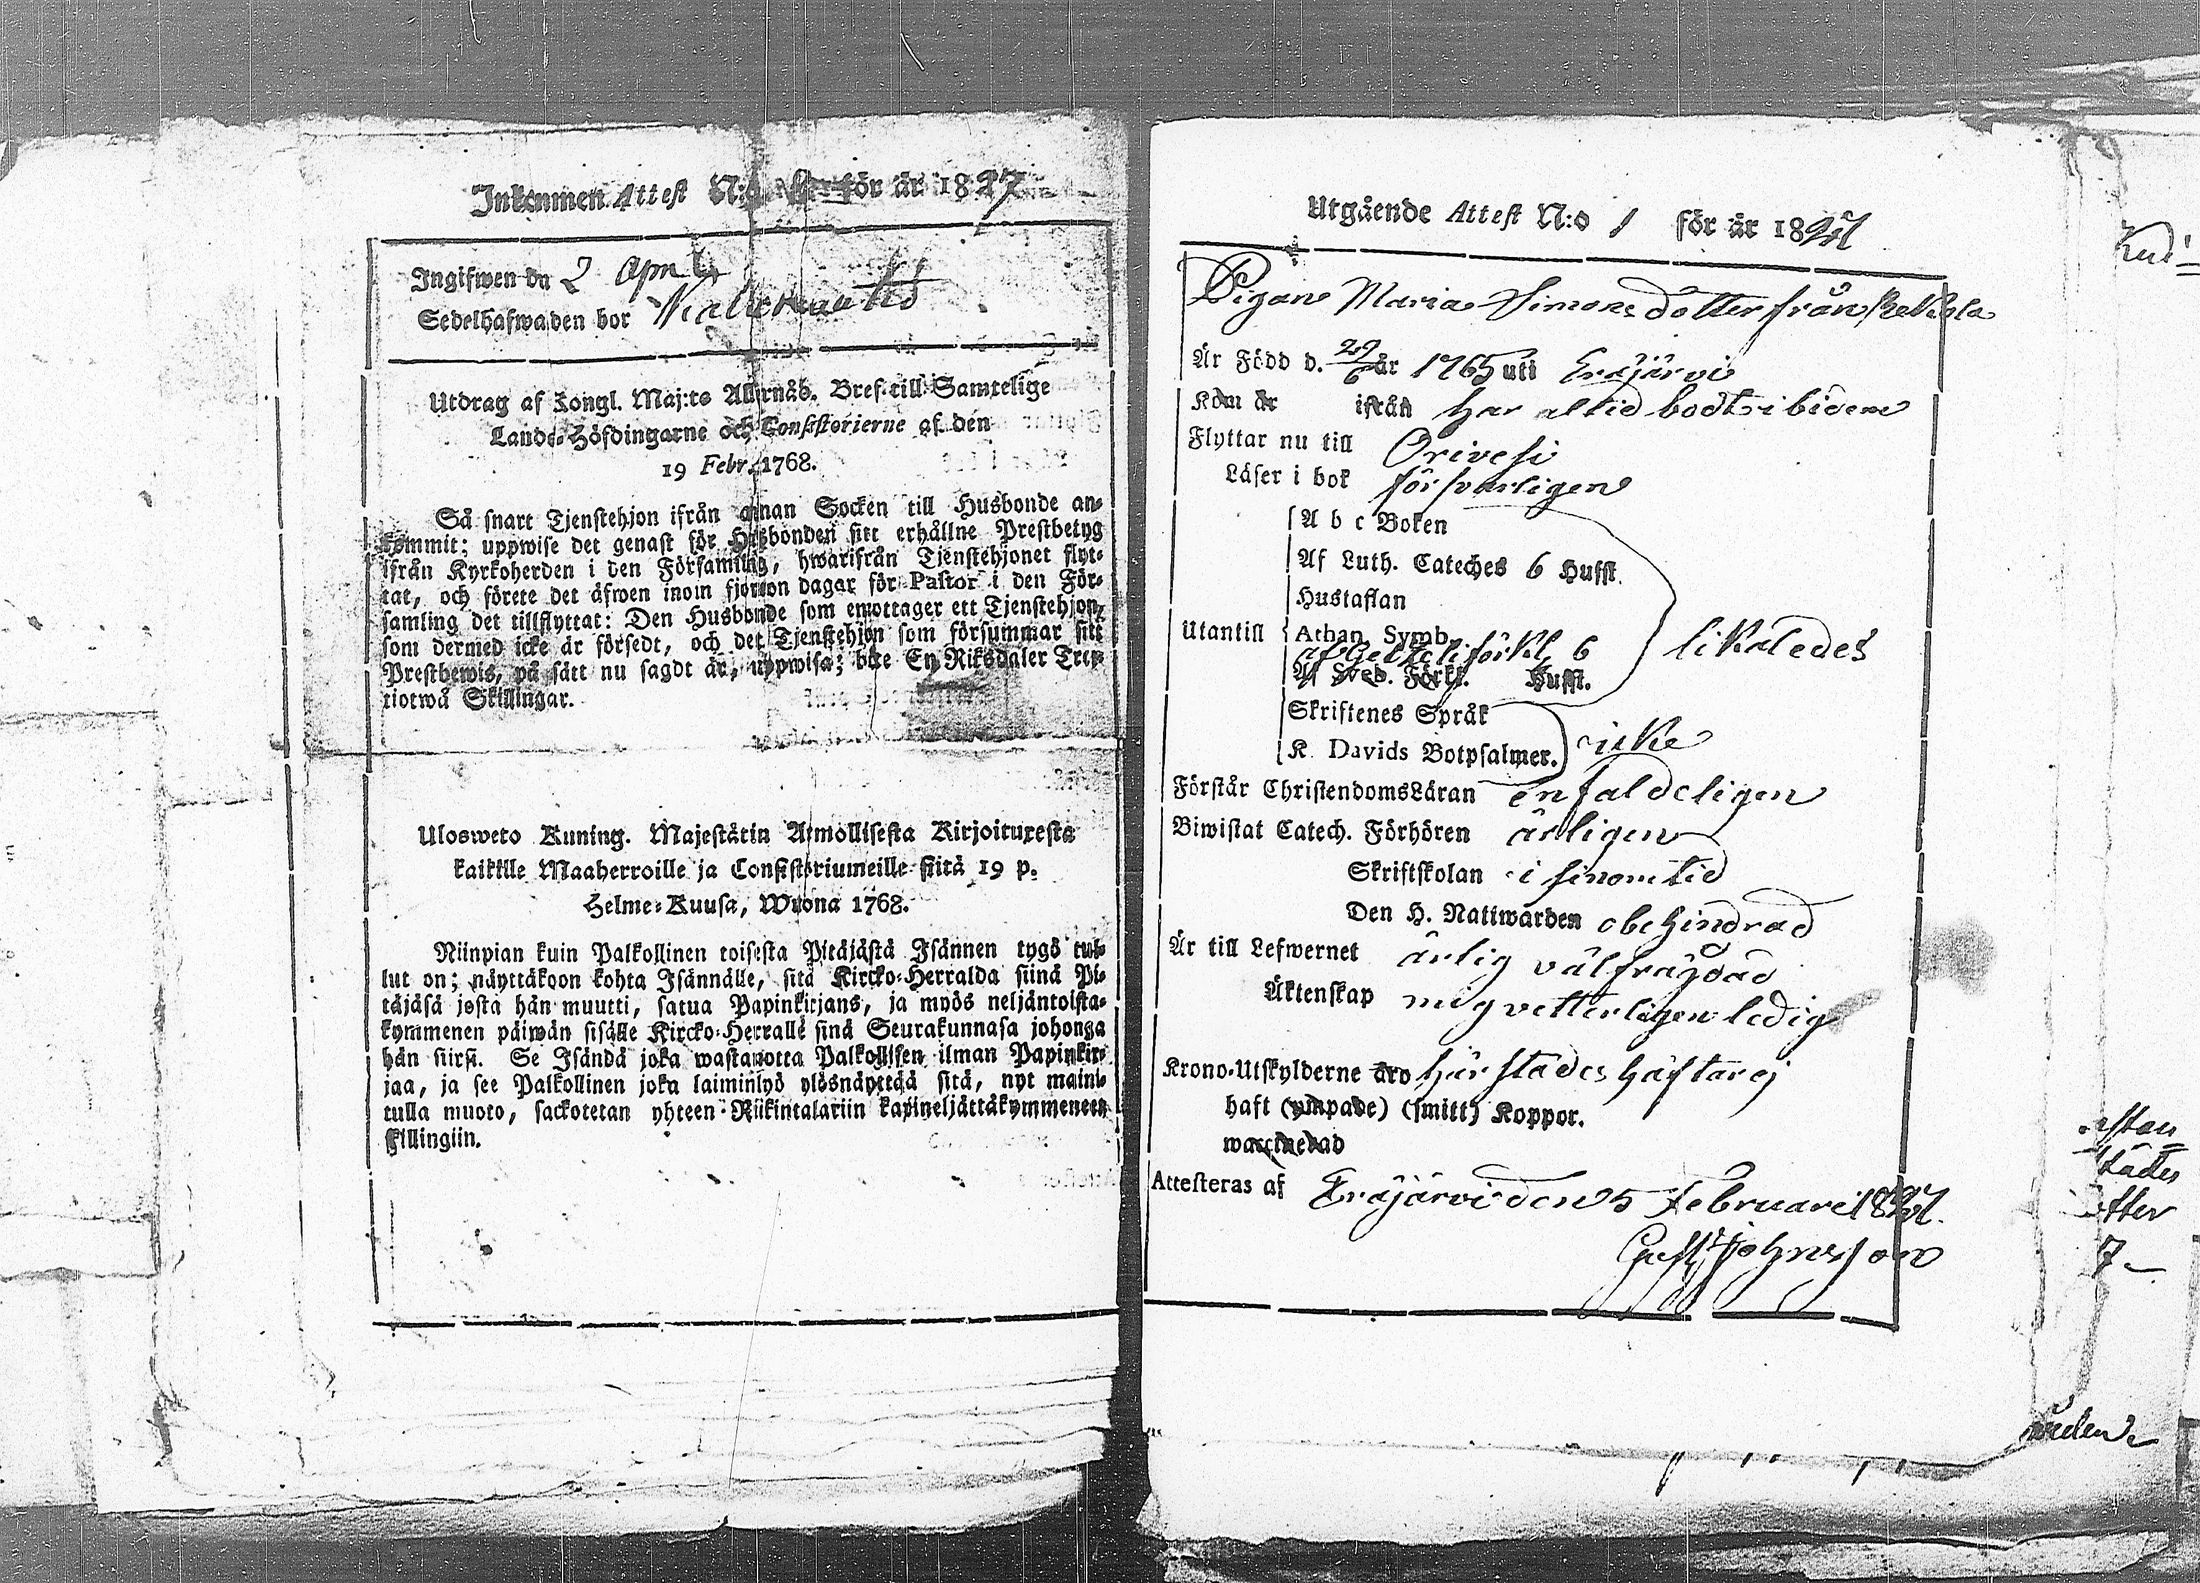 Inkommen Attest N:o för år 1827
Ingifwen dn 2 April
Sedelhafwaden bor
Utdrag af Kongl. Maj:ts Allernåd. Bref till Samtelige
Lands-Höfdingarne och Consistorierne af den
19 Febr. 1768.
Så snart Tjenstehjon ifrån annan Socken till Husbonde an-
kommit; uppwise det genast för Husbonden sitt erhållne Prestbetyg
ifrån Kyrkoherden i den Församling, hwarifrån Tjenstehjonet flyt-
tat, och förete det äfwen inom fjorton dagar för Pastor i den För-
samling det tillflyttat: Den Husbonde som emottager ett Tjenstehjon,
som dermed icke är försedt, och det Tjenstehjon som försummar sitt
Prestbewis, på sätt nu sagdt är, uppwisa; böte En Riksdaler Tret-
tiotwå Skillingar.
Ulosweto Kuning. Majestätin Armollisesta Kirjoituxesta
kaikille Maaherroille ja Consistoriumeille siitä 19 p.
Helme-Kuusa, Wuona 1768.
Niinpian kuin Palkollinen toisesta Pitäjästä Isännen tygö tul-
lut on; näyttäkoon kohta Isännälle, sitä Kircko-Herralda siinä Pi-
täjäsä josta hän muutti, satua Papinkirjans, ja myös neljäntoista-
kymmenen päiwän sisälle Kircko-Herralle sinä Seurakunnasa johonga
hän siirsi. Se Isändä joka wastanotta Palkollisen ilman Papinkir-
jaa, ja see Palkollinen joka laiminlyö ylösnäyttää sitä, nyt maini-
tulla muoto, sackotetan yhteen Riikintalariin kapineljättäkymmeneen
skillingiin.
Utgående Attest N:o 1 för år 1827
Pigan Maria Simons dotter från Kekkola
Är Född d. 29/6 år 1765 uti Eräjärvi
Kom år ifrån har altid bodt i bidem
Flyttar nu till Orivesi
Läser i bok försvarligen
A b c Boken
Af Luth. Cateches 6 Hufst.
Hustaflan
Utantill Athan. Symb. likaledes
af Gezeli förkl. 6
Af Sveb. Förkl. Hufst.
Skriftenes Språk
K. Davids Botpsalmer. icke
Förstår ChristendomsLäran enfaldeligen
Biwistat Catech. Förhören årligen
Skriftskolan i sinom tid
Den H. Nattwarden obehindrad
Är till Lefwernet ärlig välfrägdad
Äktenskap mig vetterligen ledig
Krono-Utskylderne äro härstädes häftar ej
haft (ympade) (smitt) Koppor.
waccinerad
Attesteras af Eräjärvi den 5 Februarii 1827.
Gust. Johnsson